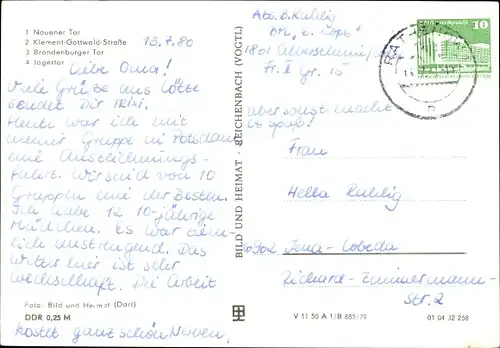 1 Nauener Tor
2 Klement-Gottwald-Straße
3 Brandenburger Tor
4 Jägertor
13.7.80
Liebe Oma!
Viele Grüße aus
sendet Dir
Heute war ich mit
meiner Gruppe in Potsdam
eine Auszeichnungs-
fahrt. Wir sind von 10
Gruppen eine der Besten.
Ich habe 12 10-jährige
Mädchen. Es war ziem-
lich anstrengend. Das
Wetter hier ist sehr
wechselhaft. Die Arbeit
Foto: Bild und Heimat (Darr)
DDR 0,25 M
kostet ganz schön Nerven,
BILD UND HEIMAT REICHENBACH (VOGTL)
Abs. B. Ruhlig
1801
Gr. 15
aber sonst macht
es Spaß!
10
Frau
Hella Ruhlig
6902 Jena-Lobeda
Richard-Zimmermann-
Str. 2
V 11 50 A 1/B 885/79
01 04 32 258